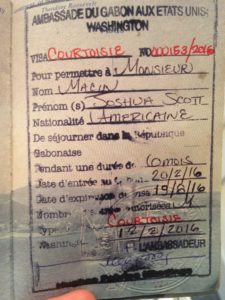 Theodore Roosevelt
AMBASSADE DU GABON AUX ETATS UNIS
WASHINGTON
VISA COURTOISIE No 000153/2016
Pour permettre à MONSIEUR
Nom MACIN
Prénom (s) JOSHUA SCOTT
Nationalité AMERICAINE
De séjourner dans la République
Gabonaise
Pendant une durée de 6 MOIS
Date d'entrée au 20/2/16
Date d'expiration visa 19/8/16
Nombre autorisées M
Type COURTOISIE
Washington 12/2/2016
L'AMBASSADEUR